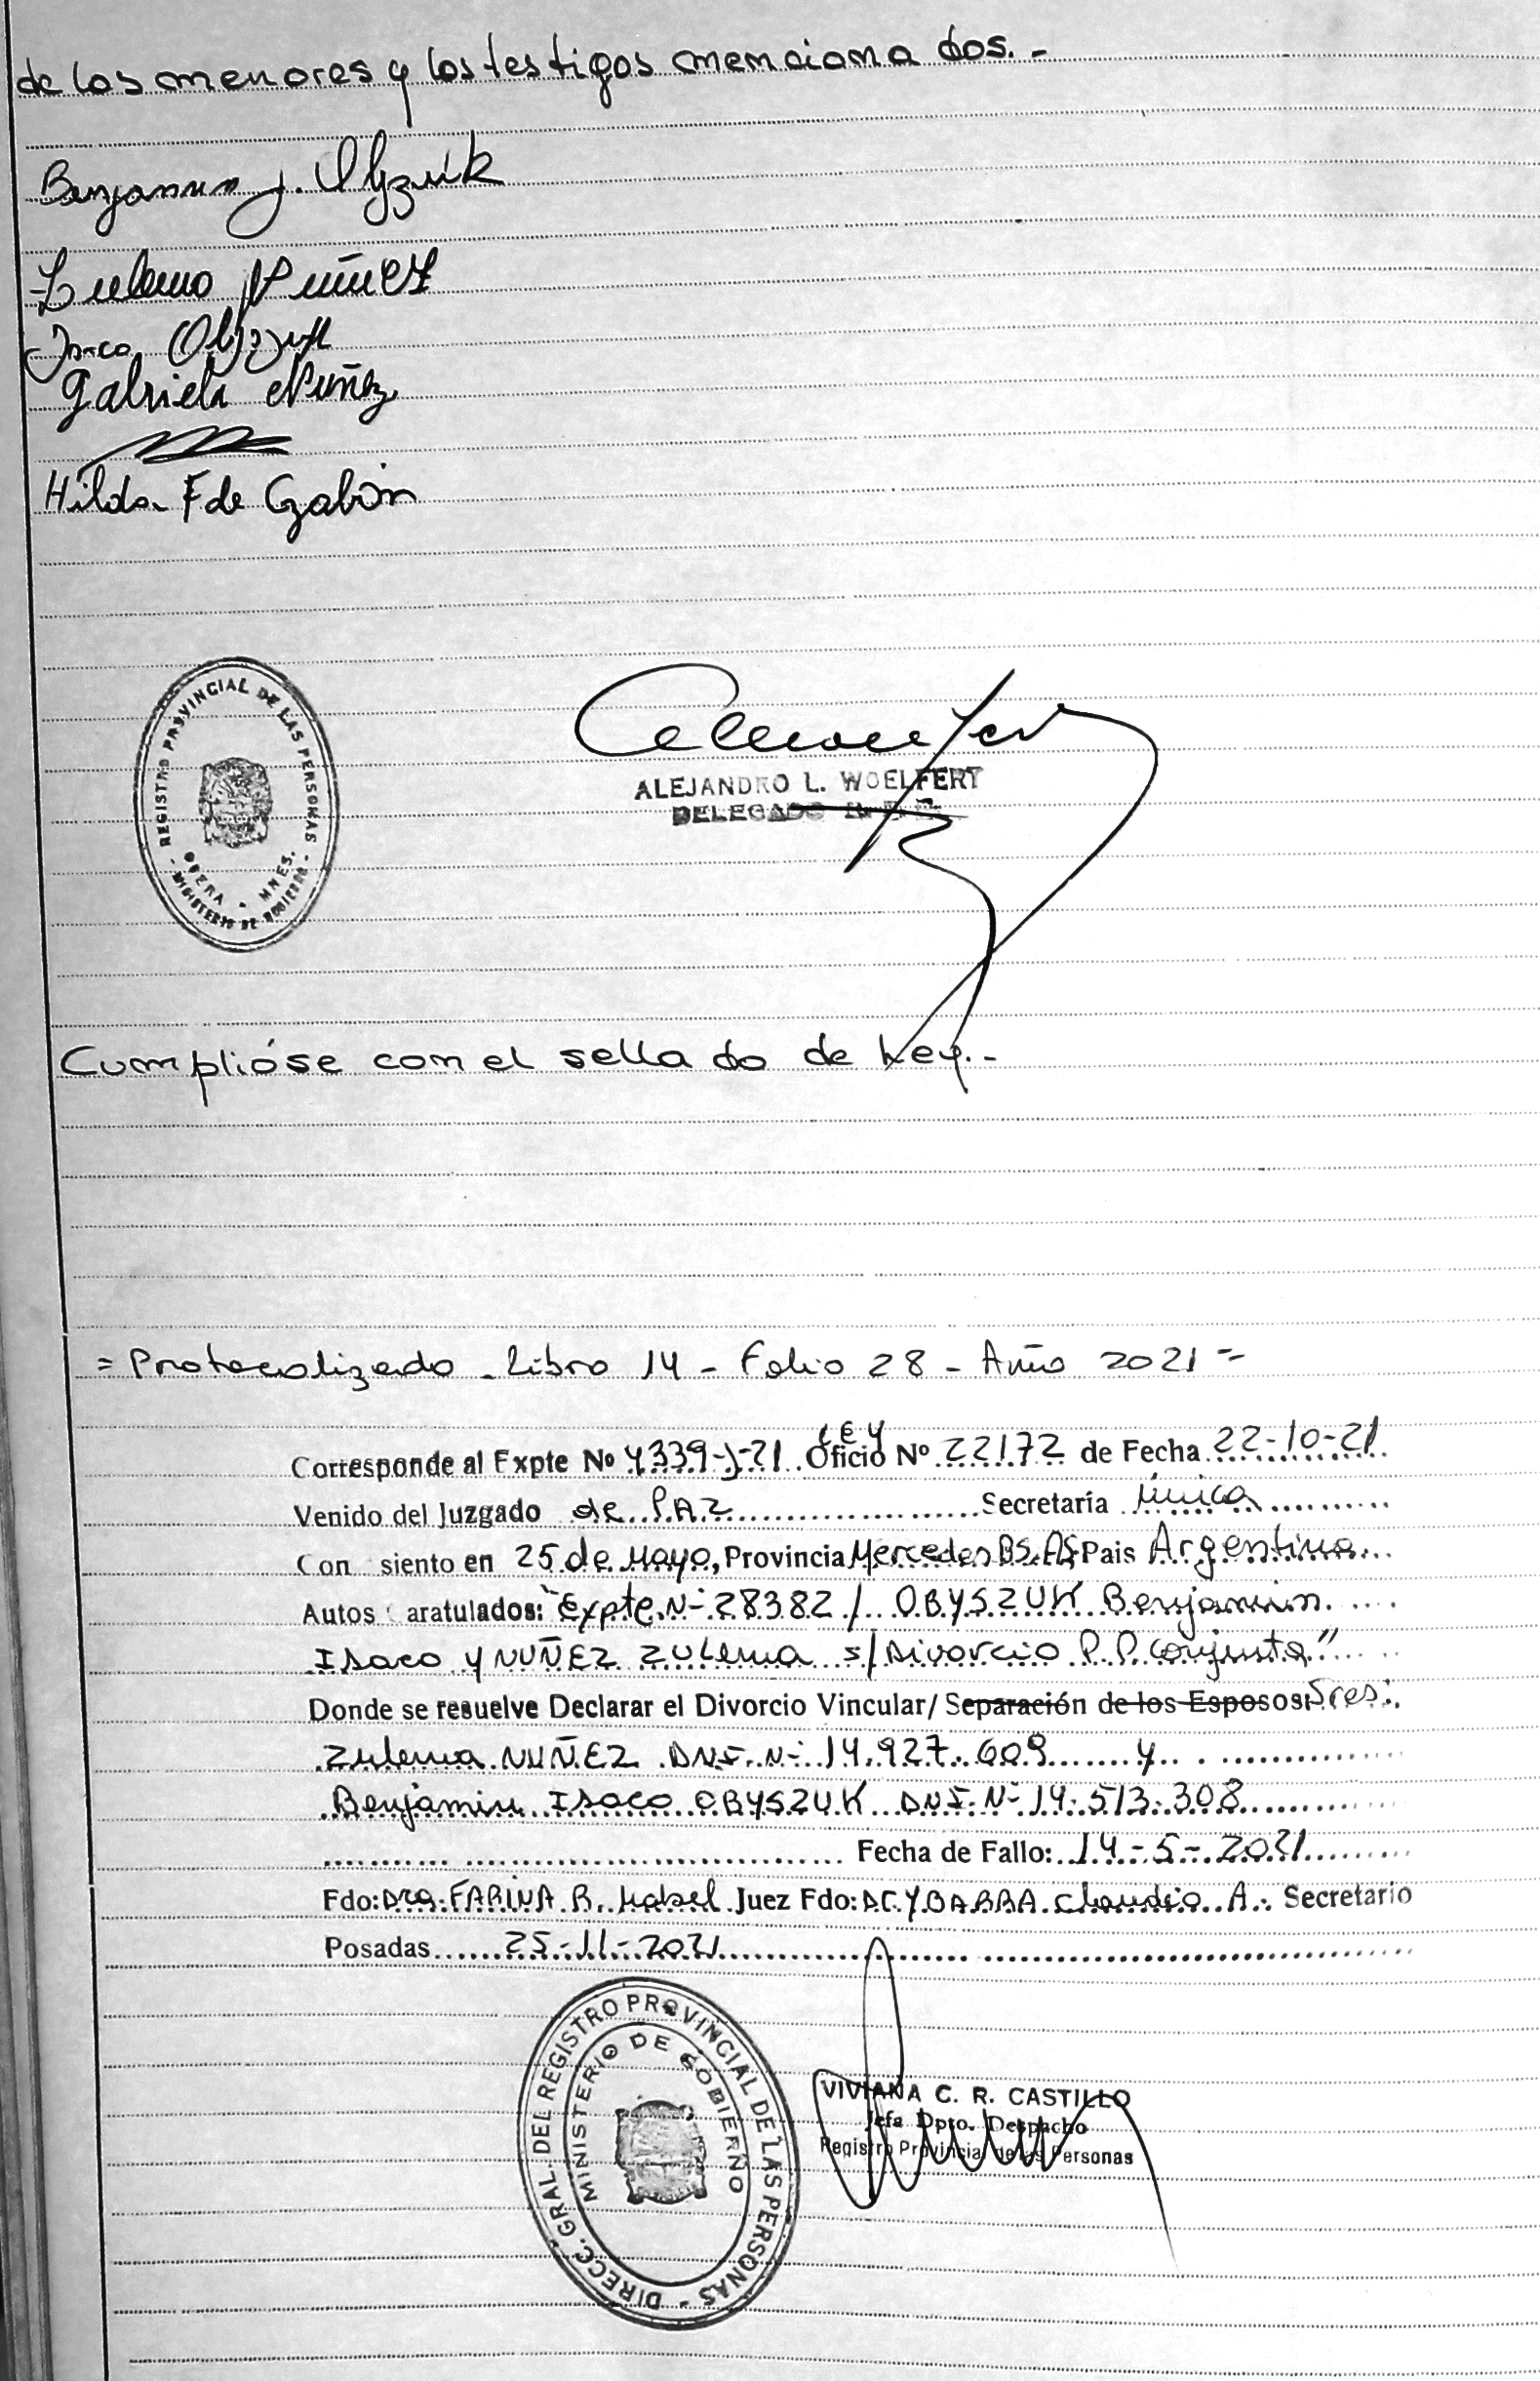 de los menores y los testigos menciona dos.-
Benjamin J. Obyszuk
Zulema Nuñez
Isaco Obyszuk
Gabriela Nuñez
Hilda F de Gabin
REGISTRO PROVINCIAL DE LAS PERSONAS
OBERA - MNES.
MINISTERIO DE GOBIERNO
ALEJANDRO L. WOELFERT
DELEGADO R. P. P.
Cumplióse con el sella do de Ley.-
= Protocolizado - Libro 14 - Folio 28 - Año 2021 =
Corresponde al Expte Nº 4339-J-21 Oficio LEY Nº 22172 de Fecha 22-10-21
Venido del Juzgado de PAZ Secretaría Única
Con siento en 25 de Mayo, Provincia Mercedes BS.AS Pais Argentina
Autos aratulados: "Expte. N- 28382 / OBYSZUK Benjamin
Isaco y NUÑEZ ZULema s/ Divorcio P.P. Conjunta"
Donde se resuelve Declarar el Divorcio Vincular/ Separación de los Esposos: Sres:
Zulema NUÑEZ DNI. N- 14.927.609 y
Benjamin Isaco OBYSZUK DNI. N- 14.513.308
Fecha de Fallo: 14-5-2021
Fdo: Dra. FARINA R. Mabel Juez Fdo: DC. YBARRA Claudio A. Secretario
Posadas 25-11-2021
DIRECC. GRAL. DEL REGISTRO PROVINCIAL DE LAS PERSONAS -
MINISTERIO DE GOBIERNO
VIVIANA C. R. CASTILLO
Jefa Dpto. Despacho
Registro Provincial de las Personas